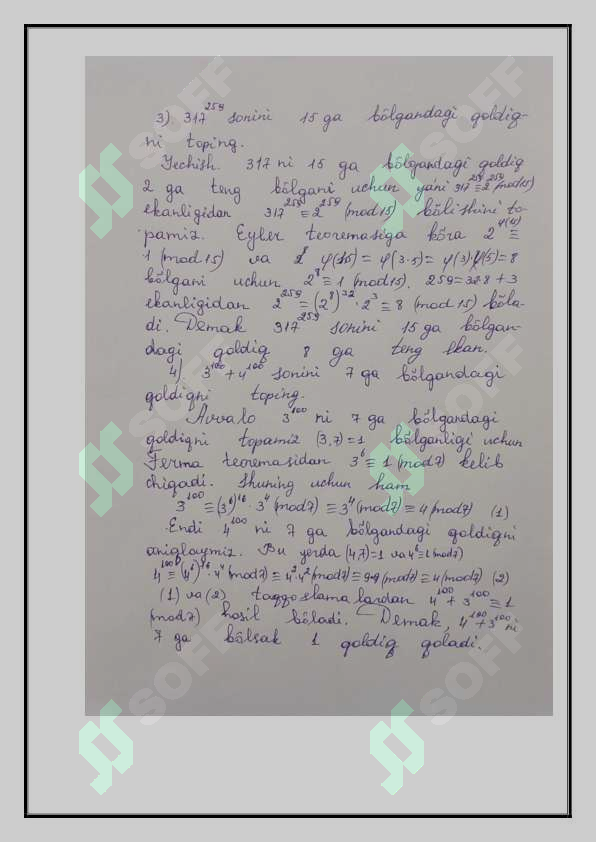 3) 317²⁵⁹ sonini 15 ga bőlgandagi qoldiq-
ni toping.
Yechish. 317 ni 15 ga bőlgandagi qoldiq
2 ga teng bőlgani uchun ya'ni 317²⁵⁹≡2²⁵⁹ (mod 15)
ekanligidan 317²⁵⁹≡2²⁵⁹ (mod 15) bőlishini to-
pamiz. Eyler teoremasiga kőra 2^φ(15) ≡
1 (mod 15) va 2⁸ φ(15) = φ(3·5) = φ(3)·φ(5)=8
bőlgani uchun 2⁸≡1 (mod 15). 259=32·8+3
ekanligidan 2²⁵⁹=(2⁸)³²·2³≡8 (mod 15) bőla-
di. Demak 317²⁵⁹ sonini 15 ga bőlgan-
dagi qoldiq 8 ga teng ekan.
4) 3¹⁰⁰+4¹⁰⁰ sonini 7 ga bőlgandagi
qoldiqni toping.
Avvalo 3¹⁰⁰ ni 7 ga bőlgandagi
qoldiqni topamiz (3,7)=1 bőlganligi uchun
Ferma teoremasidan 3⁶≡1 (mod 7) kelib
chiqadi. Shuning uchun ham
3¹⁰⁰≡(3⁶)¹⁶·3⁴ (mod 7) ≡3⁴ (mod 7) ≡ 4 (mod 7) (1)
Endi 4¹⁰⁰ ni 7 ga bőlgandagi qoldiqni
aniqlaymiz. Bu yerda (4,7)=1 va 4⁶≡1 (mod 7)
4¹⁰⁰≡(4⁶)¹⁶·4⁴ (mod 7) ≡4²·4² (mod 7) ≡ (mod 7) ≡4 (mod 7) (2)
(1) va (2) taqqoslamalardan 4¹⁰⁰+3¹⁰⁰≡1
(mod 7) hosil bőladi. Demak, 4¹⁰⁰+3¹⁰⁰ ni
7 ga bőlsak 1 qoldiq qoladi.
SOFF
SOFF
SOFF
SOFF
SOFF
SOFF